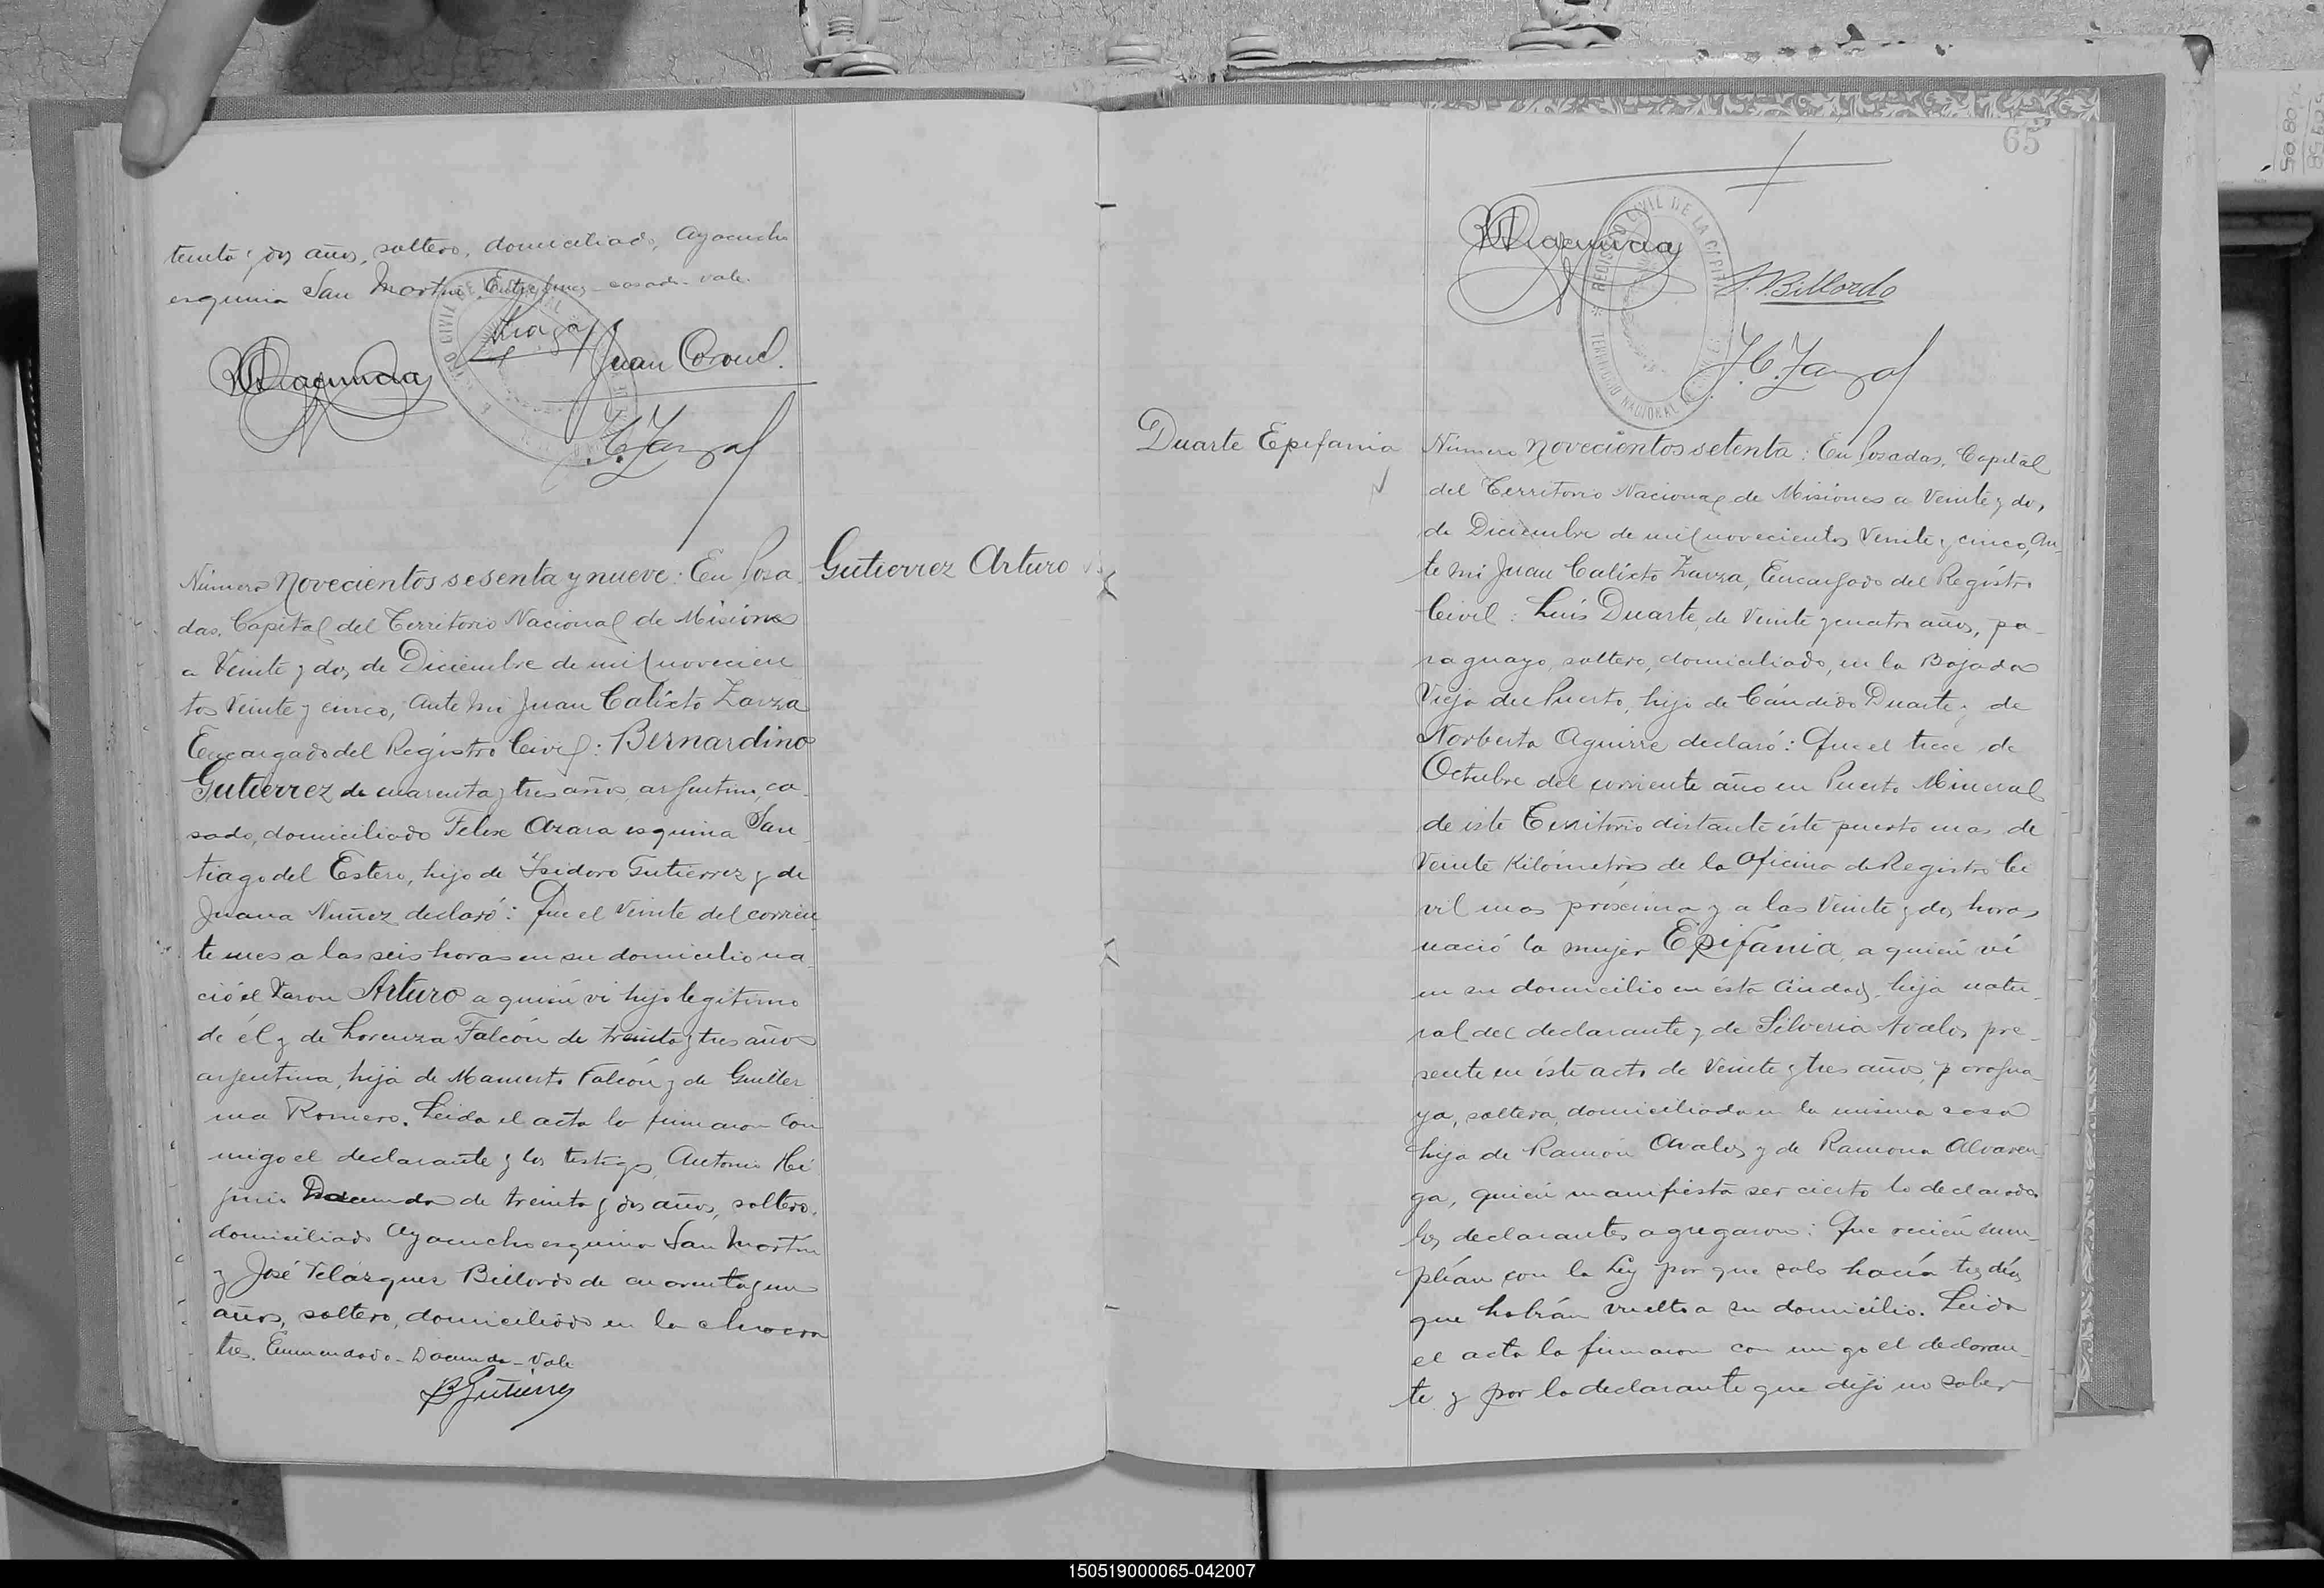 tenta y dos años, soltero, domiciliado, Ayacucho
esquina San Martin. Entre lineas - casado - vale.
Juan Coronel.
J.C. Zarza
Número Novecientos sesenta y nueve: En Posa
das, Capital del Territorio Nacional de Misiones
a Veinte y dos de Diciembre de mil novecien
tos Veinte y cinco, Ante mi Juan Calixto Zarza
Encargado del Registro Civil: Bernardino
Gutierrez de cuarenta y tres años, argentino, ca-
sado, domiciliado Felix Azara esquina San
tiago del Estero, hijo de Isidoro Gutierrez y de
Juana Nuñez declaró: Que el Veinte del corrien
te mes a las seis horas en su domicilio na
ció el Varon Arturo a quien vi hijo legitimo
de él y de Lorenza Falcón de treinta y tres años
argentina, hija de Mamerto Falcón y de Guiller
ma Romero. Leida el acta la firmaron con
migo el declarante y los testigos Antonio Hi
ginio Dacunda de treinta y dos años, soltero,
domiciliado Ayacucho esquina San Martín
y José Velázquez Billordo de cuarenta y un
años, soltero, domiciliado en la chacra
tres. Enmendado - Dacunda - Vale
B Gutierrez
Gutierrez Arturo
65
REGISTRO CIVIL DE LA CAPITAL
TERRITORIO NACIONAL DE
J. V. Billordo
J.C. Zarza
Duarte Epifania
Número Novecientos setenta: En Posadas, Capital
del Territorio Nacional de Misiones a Veinte y dos
de Diciembre de mil novecientos Veinte y cinco, An-
te mi Juan Calixto Zarza, Encargado del Registro
Civil: Luis Duarte, de Veinte y cuatro años, pa-
raguayo, soltero, domiciliado, en la Bajada
Vieja del Puerto, hijo de Cándido Duarte y de
Norberta Aguirre declaró: Que el trece de
Octubre del corriente año en Puerto Mineral
de este Territorio distante éste puerto mas de
Veinte Kilómetros de la Oficina de Registro Ci
vil mas próxima y a las Veinte y dos horas
nació la mujer Epifania, a quien vi
en su domicilio en ésta Ciudad, hija natu-
ral del declarante y de Silveria Avalos pre-
sente en éste acto de Veinte y tres años, paragua-
ya, soltera, domiciliada en la misma casa
hija de Ramón Avalos y de Ramona Alvaren-
ga, quien manifiesta ser cierto lo declarado.
Los declarantes agregaron: Que recien cum-
plían con la Ley por que solo hacía tres días
que habían vuelto a su domicilio. Leida
el acta la firmaron con migo el declaran-
te y por la declarante que dijo no saber
150519000065-042007